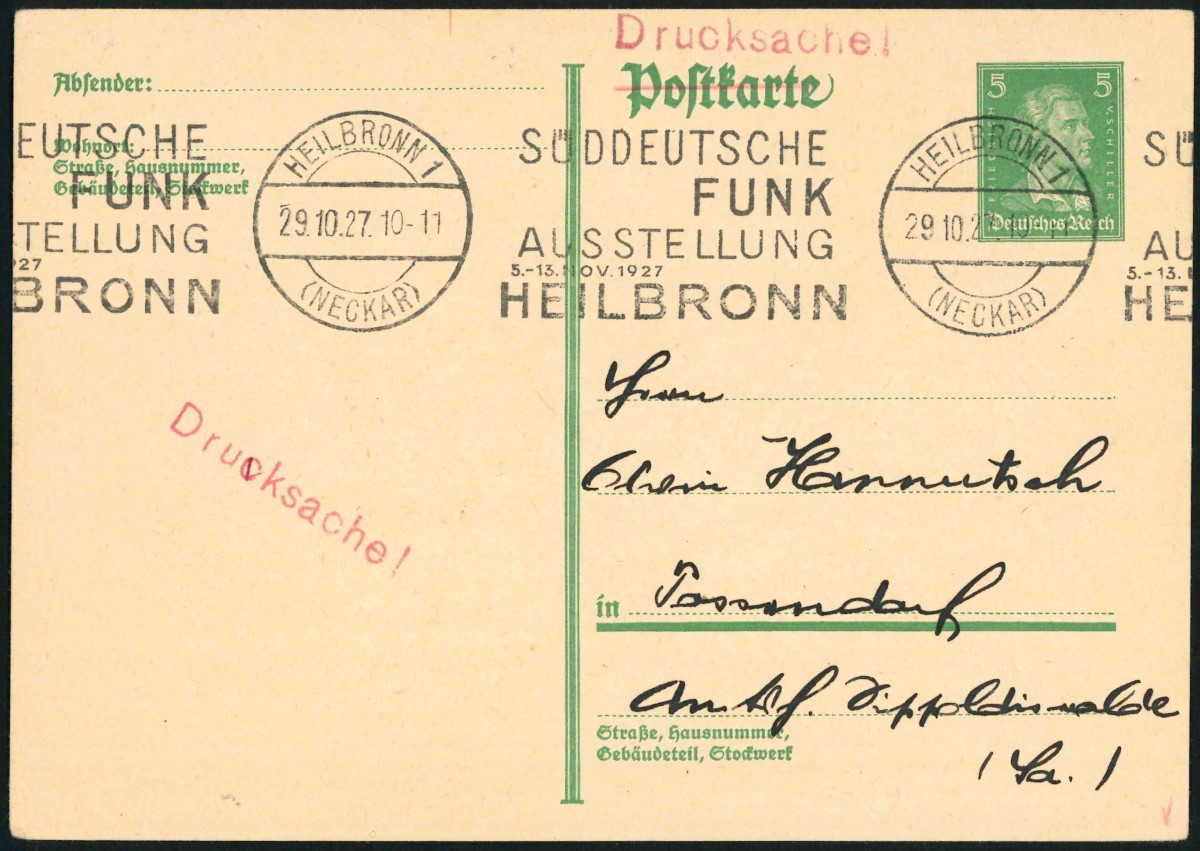 Drucksache!
Postkarte
Absender:
Wohnort:
Straße, Hausnummer,
Gebäudeteil, Stockwerk
EUTSCHE
FUNK
TELLUNG
27
BRONN
HEILBRONN 1
29.10.27. 10-11
(NECKAR)
SÜDDEUTSCHE
FUNK
AUSSTELLUNG
5.-13. NOV. 1927
HEILBRONN
5 5
FRIEDRICH V. SCHILLER
Deutsches Reich
HEILBRONN 1
29.10.27. 10-11
(NECKAR)
SÜ
AU
5.-13.
HE
Drucksache!
Herrn
Hannutsch
in Possendorf
Amtsh. Dippoldiswalde
(Sa.)
Straße, Hausnummer,
Gebäudeteil, Stockwerk